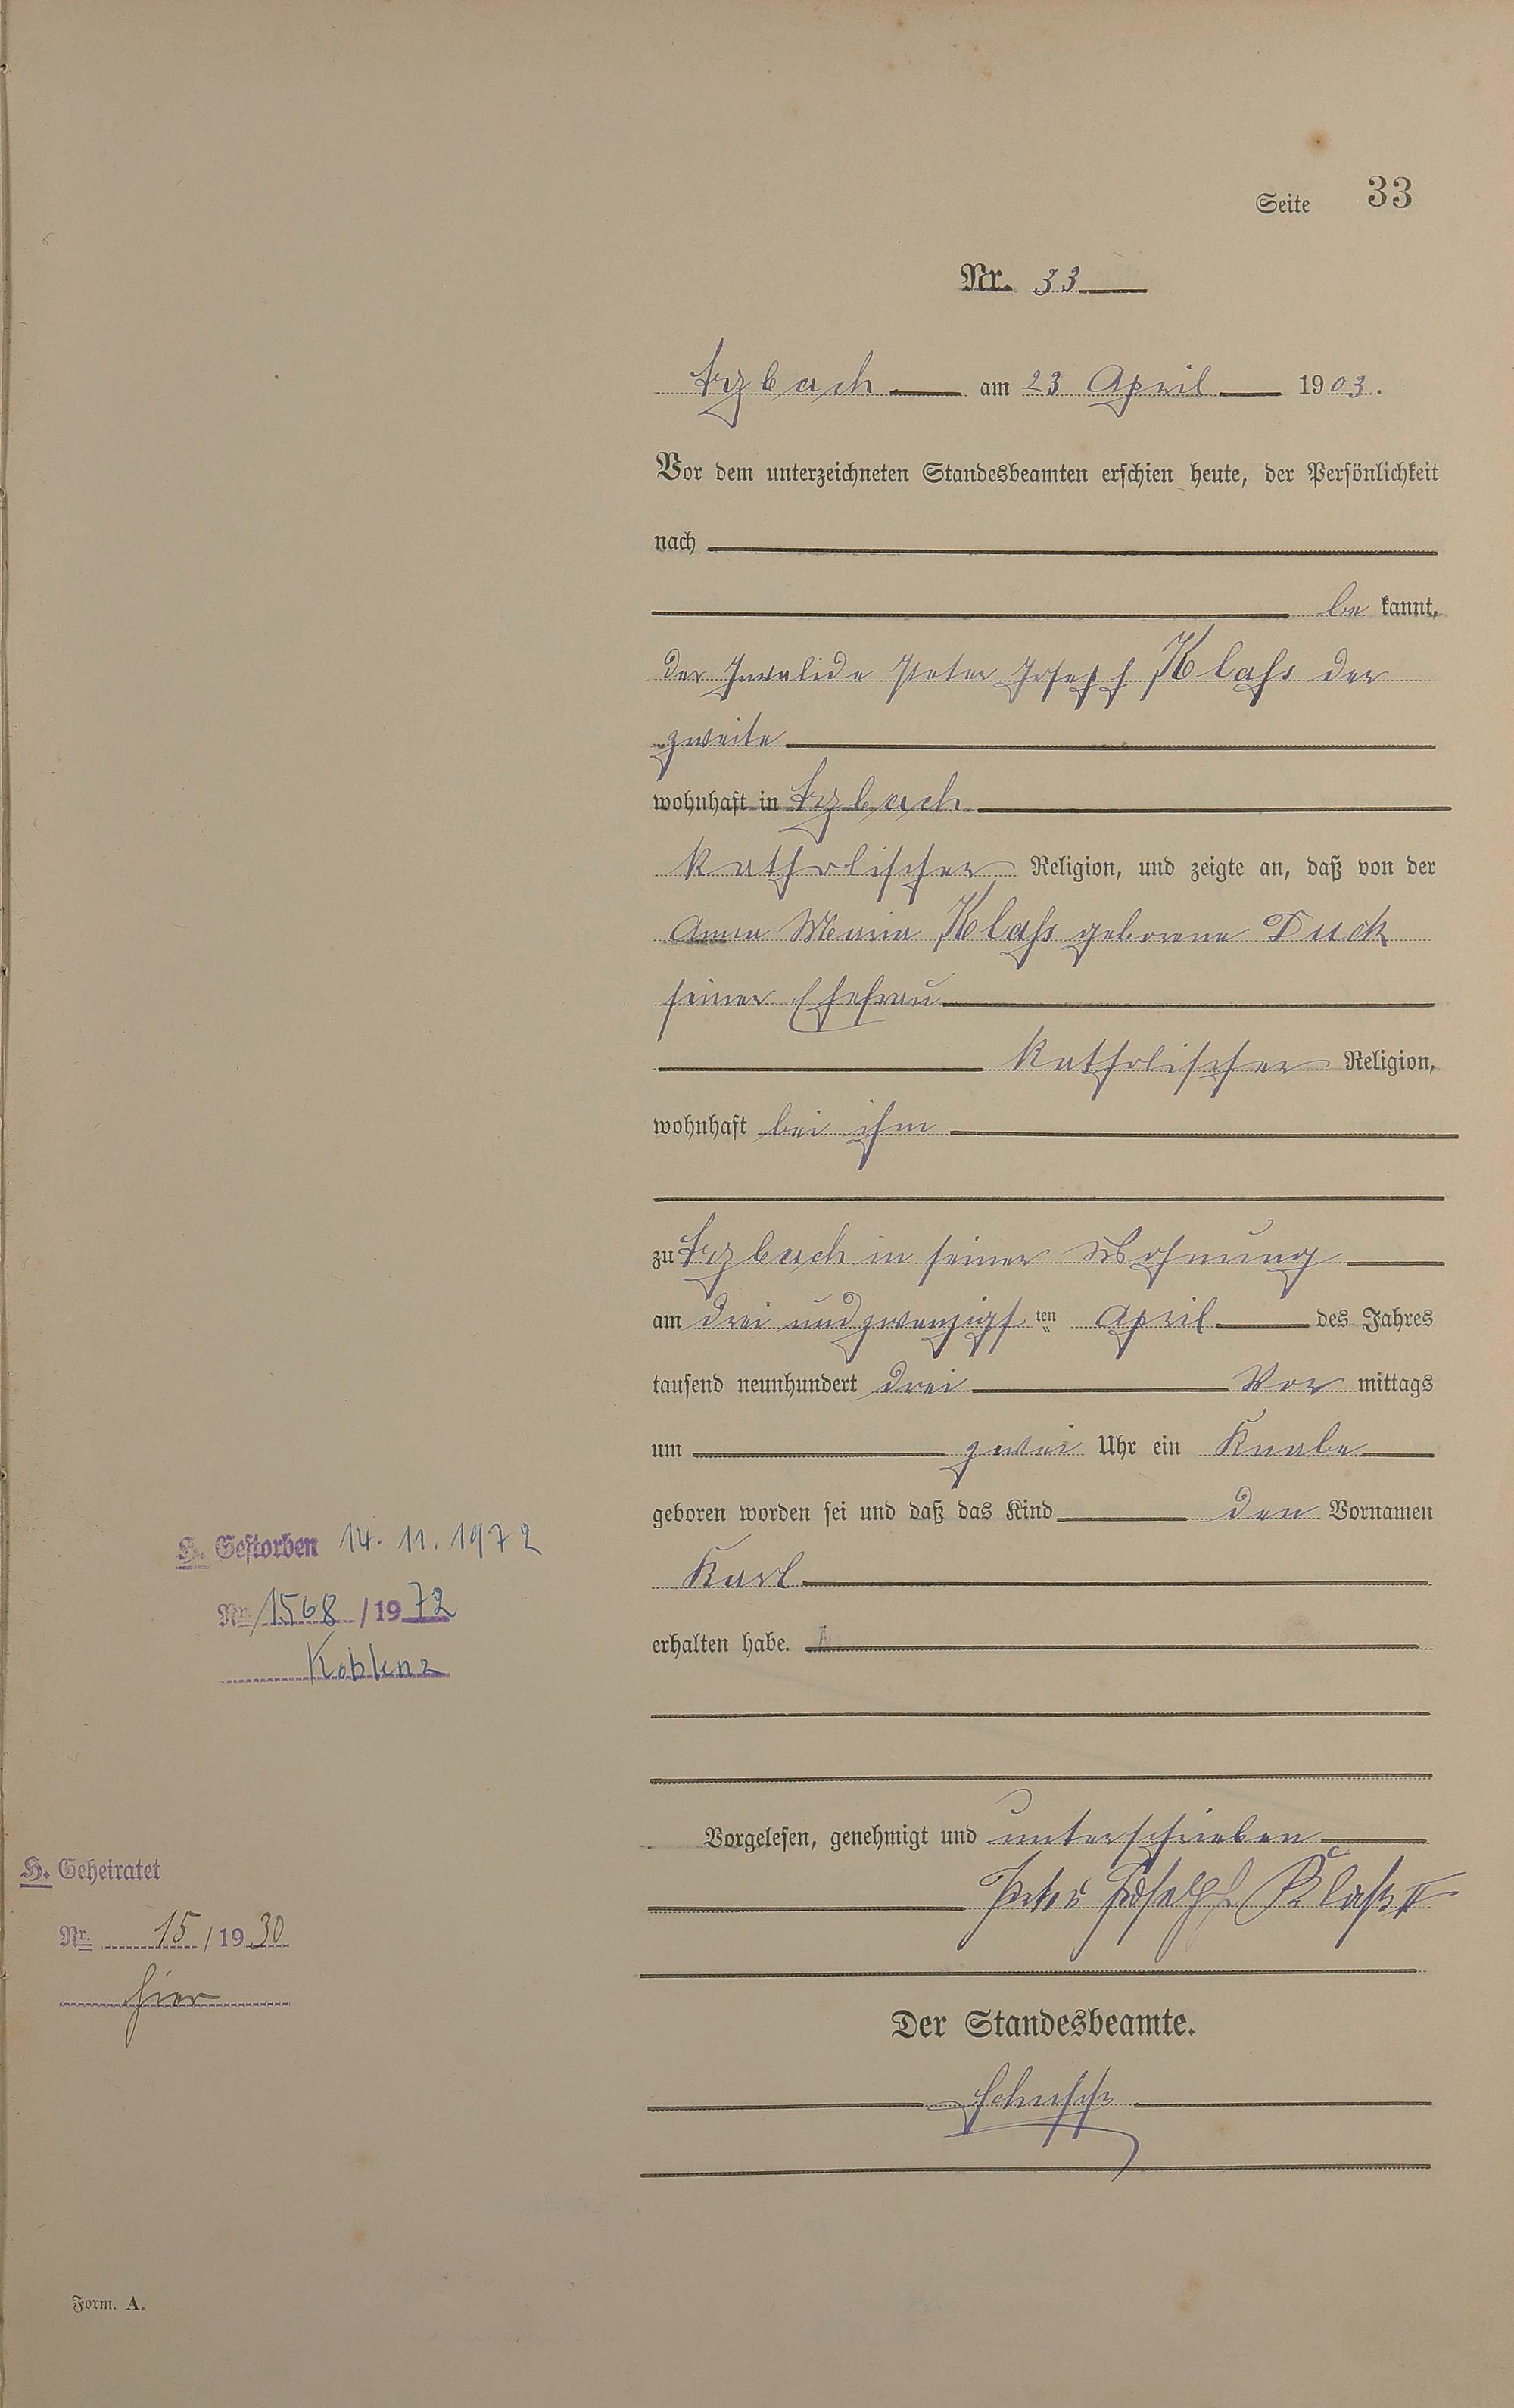 Seite 33
Nr. 33
Arzbach am 23 April 1903.
Vor dem unterzeichneten Standesbeamten erschien heute, der Persönlichkeit
nach
be kannt,
der Invalide Peter Joseph Klaß der
zweite
wohnhaft in Arzbach
katholischer Religion, und zeigte an, daß von der
Anna Maria Klaß geborene Duck
seiner Ehefrau
katholischer Religion,
wohnhaft bei ihm
zu Arzbach in seiner Wohnung
am drei und zwanzigsten April des Jahres
tausend neunhundert drei Vor mittags
um zwei Uhr ein Knabe
geboren worden sei und daß das Kind den Vornamen
Karl
erhalten habe.
Vorgelesen, genehmigt und unterschrieben
Peter Joseph Klaß II
Der Standesbeamte.
Schupp
H. Gestorben 14. 11. 1972
Nr. 1568 / 1972
Koblenz
H. Geheiratet
Nr. 15 / 1930
hier
Form. A.